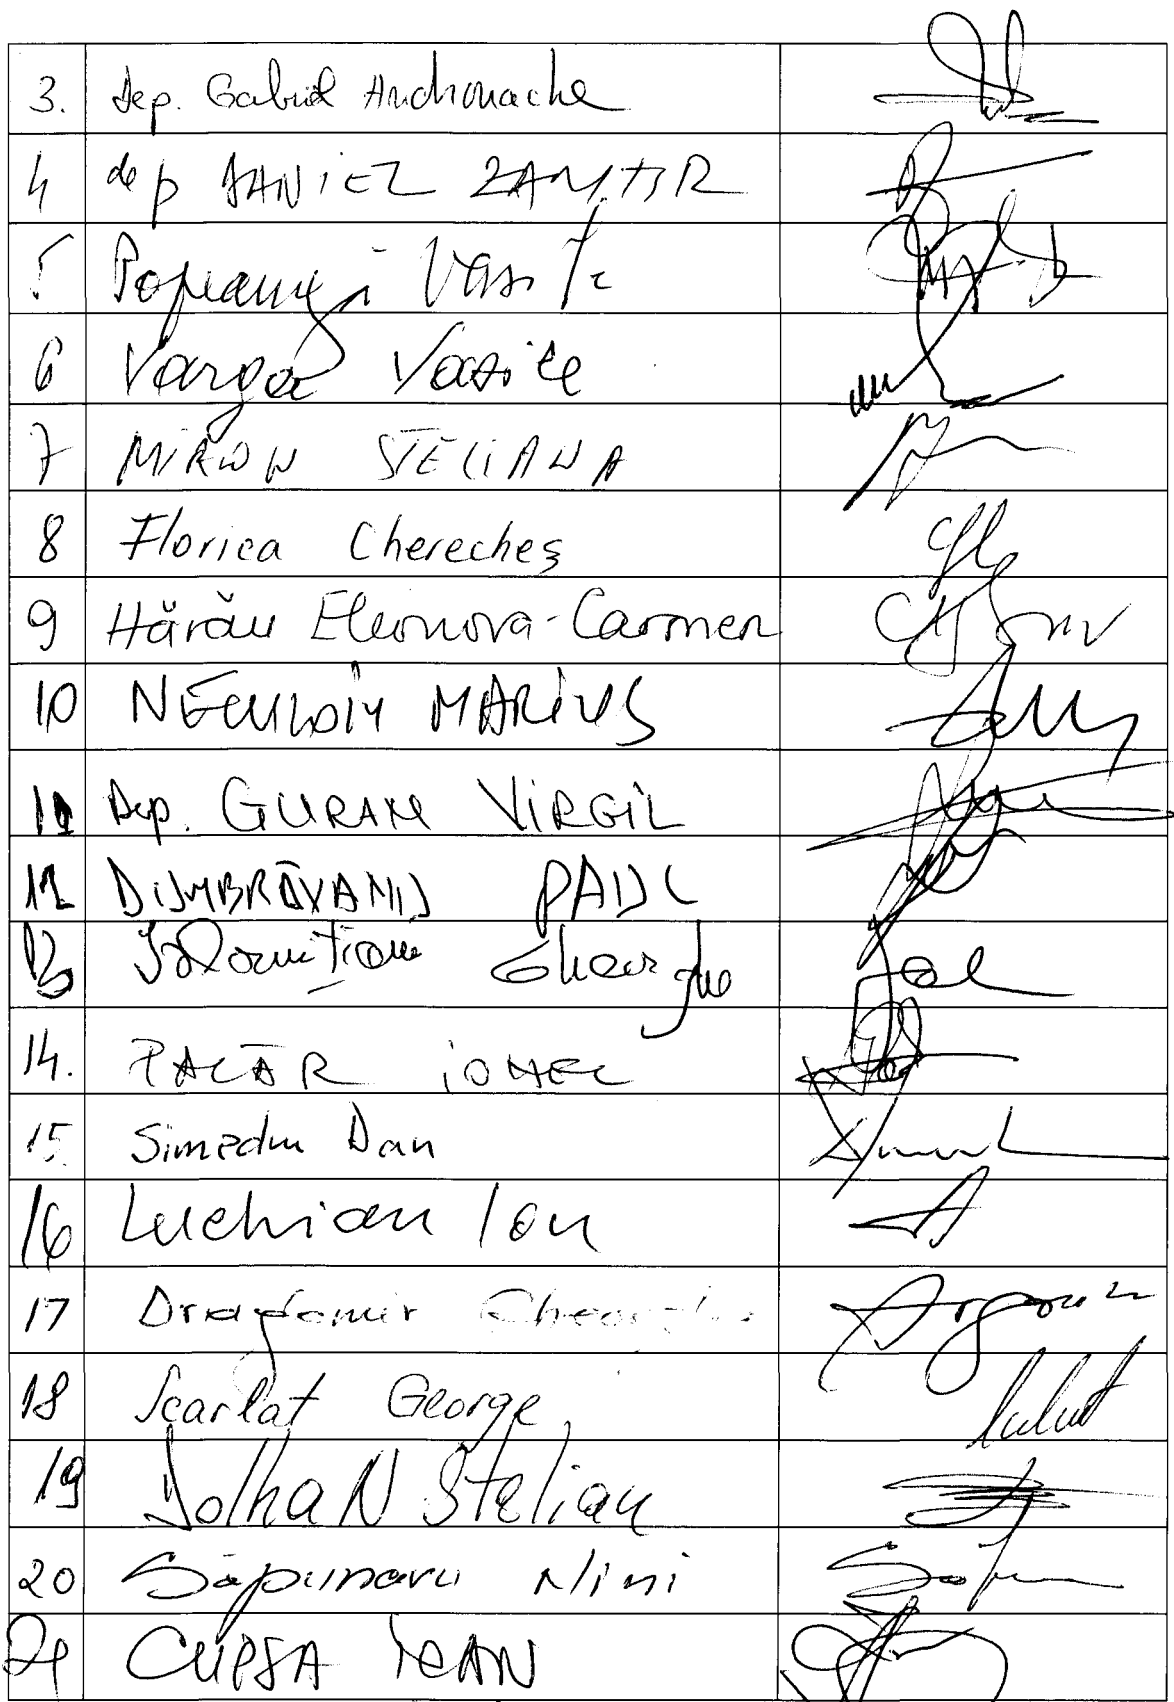 3. Dep. Gabriel Andronache
4 dep DANIEL ZAMFIR
5 Popeangă Vasile
6 Varga Vasile
7 MIRON STELIANA
8 Florica Cherecheș
9 Hărău Eleonora-Carmen
10 NECULAI MARIUS
11 Dep. GURAN VIRGIL
12 DUMBRĂVANU PAUL
13 Ialomițianu Gheorghe
14. PALĂR IONEL
15. Simedru Dan
16 Luchian Ion
17 Dragomir Gheorghe
18 Scarlat George
19 Dolha N Stelian
20 Săpunaru Nini
21 CUPȘA IOAN